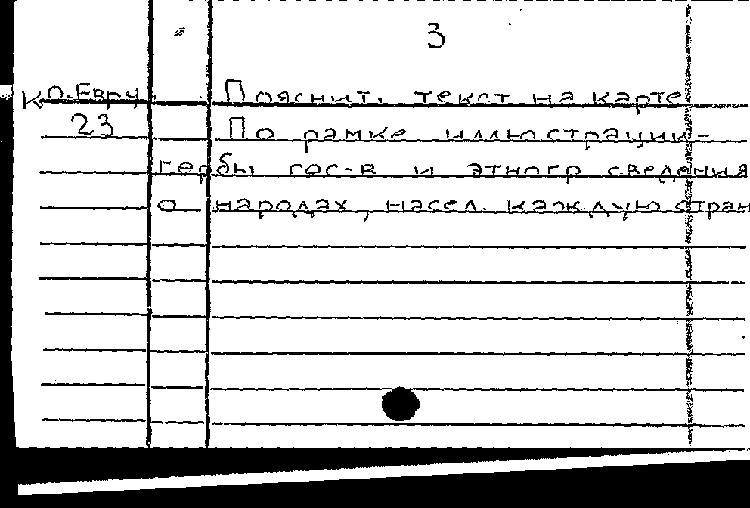 3
Ко.Евру. Пояснит. текст на карте
23 По рамке иллюстрации-
гербы гос-в и этногр сведения
о народах, насел. каждую стран